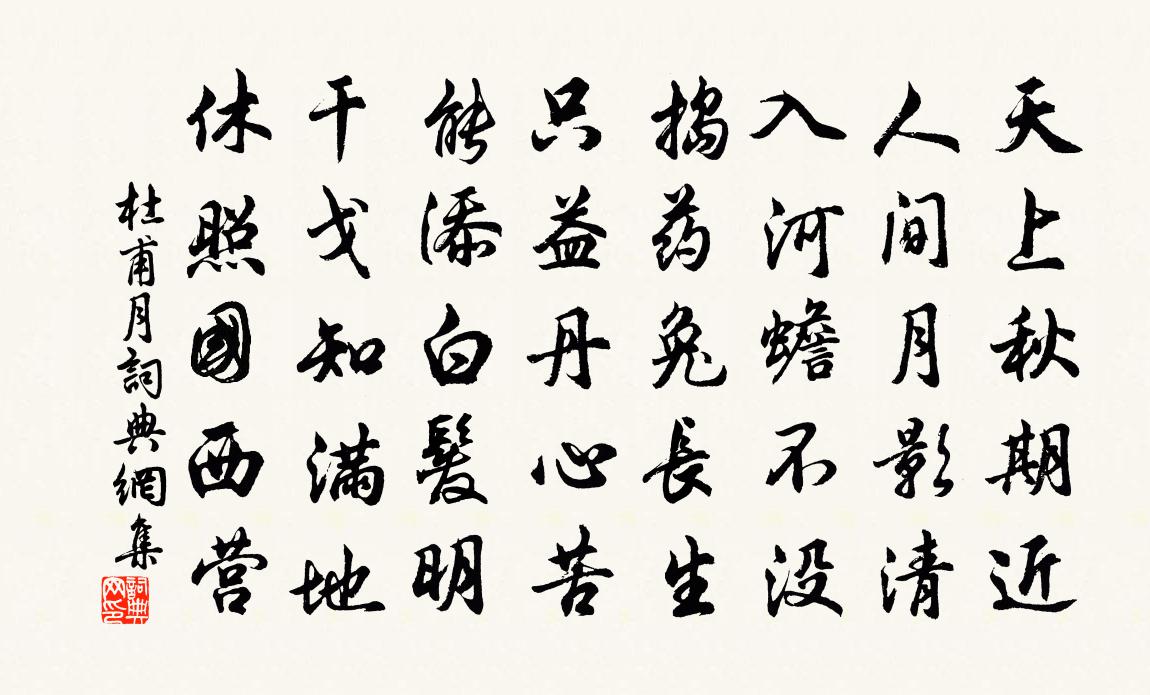 天上秋期近
人间月影清
入河蟾不没
捣药兔長生
只益丹心苦
能添白髮明
干戈知满地
休照國西营
杜甫月詞典網集
詞典网印